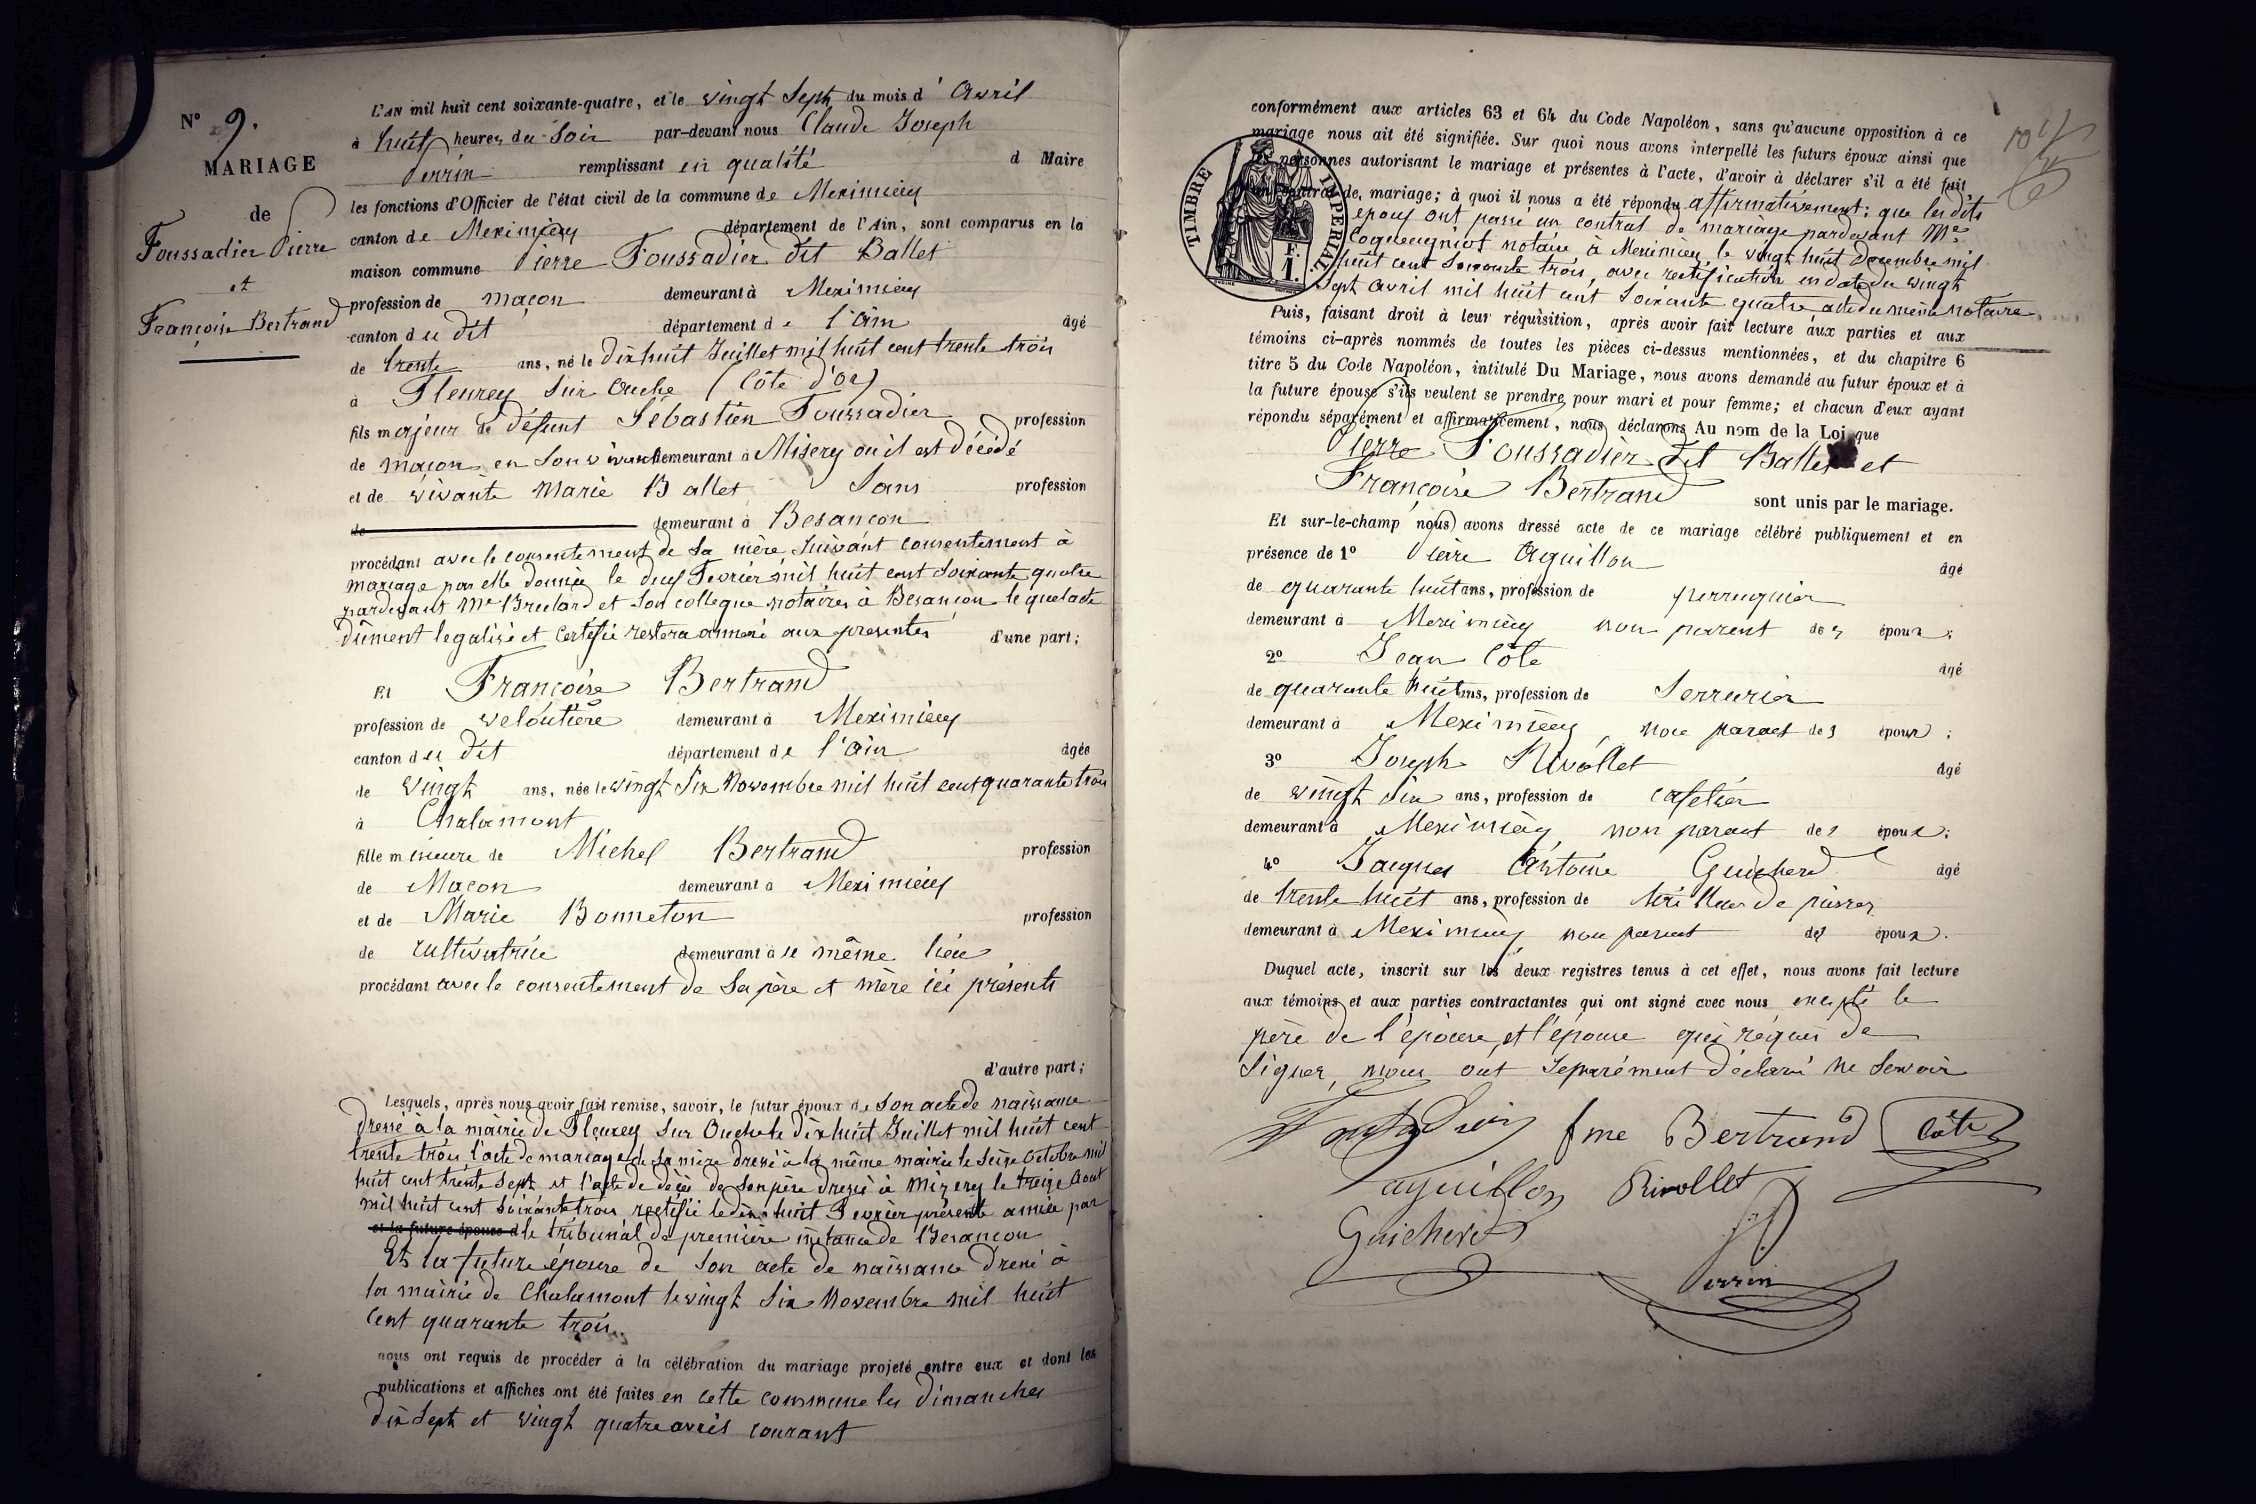 N° 9.
MARIAGE
de
Foussadier Pierre
et
Françoise Bertrand
L'AN mil huit cent soixante-quatre, et le vingt Sept du mois d' Avril
à huit heures du Soir par-devant nous Claude Joseph
Perrin remplissant en qualité d Maire
les fonctions d'Officier de l'état civil de la commune de Meximieux
canton de Meximieux département de l'Ain, sont comparus en la
maison commune Pierre Foussadier dit Ballet
profession de maçon demeurant à Meximieux
canton du dit département de l'Ain âgé
de trente ans, né le dix huit Juillet mil huit cent trente trois
à Fleurey Sur Ouche (Côte d'Or)
fils majeur de défunt Sébastien Foussadier profession
de maçon en Son vivant demeurant à Misery où il est décédé
et de vivante Marie Ballet Sans profession
de demeurant à Besançon
procédant avec le consentement de Sa mère Suivant consentement à
mariage par elle donnée le deux Fevrier mil huit cent Soixante quatre
pardevant Me Brulard et Son collegue notaires à Besançon le quel acte
dûment legalisé et certifié restera annexé aux presentes d'une part;
Et Françoise Bertrand
profession de veloutière demeurant à Meximieux
canton du dit département de l'Ain âgée
de vingt ans, née le vingt Six Novembre mil huit cent quarante trois
à Chalamont
fille mineure de Michel Bertrand profession
de Maçon demeurant à Meximieux
et de Marie Bonneton profession
de cultivatrice demeurant à le même lieu
procédant avec le consentement de Ses père et mère ici présents
d'autre part;
Lesquels, après nous avoir fait remise, savoir, le futur époux de Son acte de naissance
dressé à la mairie de Fleurey Sur Ouche le dix huit Juillet mil huit cent
trente trois, l'acte de mariage de Sa mère dressé à la même mairie le Seize Octobre mil
huit cent trente Sept et l'acte de décès de Son père dressé à Mizery le treize Aout
mil huit cent Soixante trois rectifié le dix huit Fevrier présente année par
et la future épouse d le tribunal de première instance de Besançon
Et la future épouse de Son acte de naissance dressé à
la mairie de Chalamont le vingt Six Novembre mil huit
cent quarante trois.
nous ont requis de procéder à la célébration du mariage projeté entre eux et dont les
publications et affiches ont été faites en cette commune les dimanches
dix Sept et vingt quatre avril courant
conformément aux articles 63 et 64 du Code Napoléon, sans qu'aucune opposition à ce
mariage nous ait été signifiée. Sur quoi nous avons interpellé les futurs époux ainsi que
les personnes autorisant le mariage et présentes à l'acte, d'avoir à déclarer s'il a été fait
un contrat de mariage; à quoi il nous a été répondu affirmativement; que les dits
époux ont passé un contrat de mariage pardevant Me
Cogneugniot notaire à Meximieux le vingt huit decembre mil
huit cent Soixante trois, avec rectification en date du vingt
Sept avril mil huit cent Soixante quatre acte du même notaire.
TIMBRE IMPERIAL.
F.
1.
Puis, faisant droit à leur réquisition, après avoir fait lecture aux parties et aux
témoins ci-après nommés de toutes les pièces ci-dessus mentionnées, et du chapitre 6
titre 5 du Code Napoléon, intitulé Du Mariage, nous avons demandé au futur époux et à
la future épouse s'ils veulent se prendre pour mari et pour femme; et chacun d'eux ayant
répondu séparément et affirmativement, nous déclarons Au nom de la Loi que
Pierre Foussadier dit Ballet et
Françoise Bertrand sont unis par le mariage.
Et sur-le-champ nous avons dressé acte de ce mariage célébré publiquement et en
présence de 1° Pierre Aguillon âgé
de quarante huit ans, profession de perruquier
demeurant à Meximieux non parent des époux;
2° Jean Côte âgé
de quarante huit ans, profession de Serrurier
demeurant à Meximieux non parent des époux;
3° Joseph Rivollet âgé
de vingt Six ans, profession de cafetier
demeurant à Meximieux non parent des époux;
4° Jacques Antoine Guicherd âgé
de trente huit ans, profession de tailleur de pierres
demeurant à Meximieux non parent des époux.
Duquel acte, inscrit sur les deux registres tenus à cet effet, nous avons fait lecture
aux témoins et aux parties contractantes qui ont signé avec nous excepté le
père de l'épouse, et l'épouse qui requis de
Signer, nous ont Séparément déclaré ne Savoir
Foussadier fme Bertrand Côte
aguillon Rivollet
Guicherd
Perrin